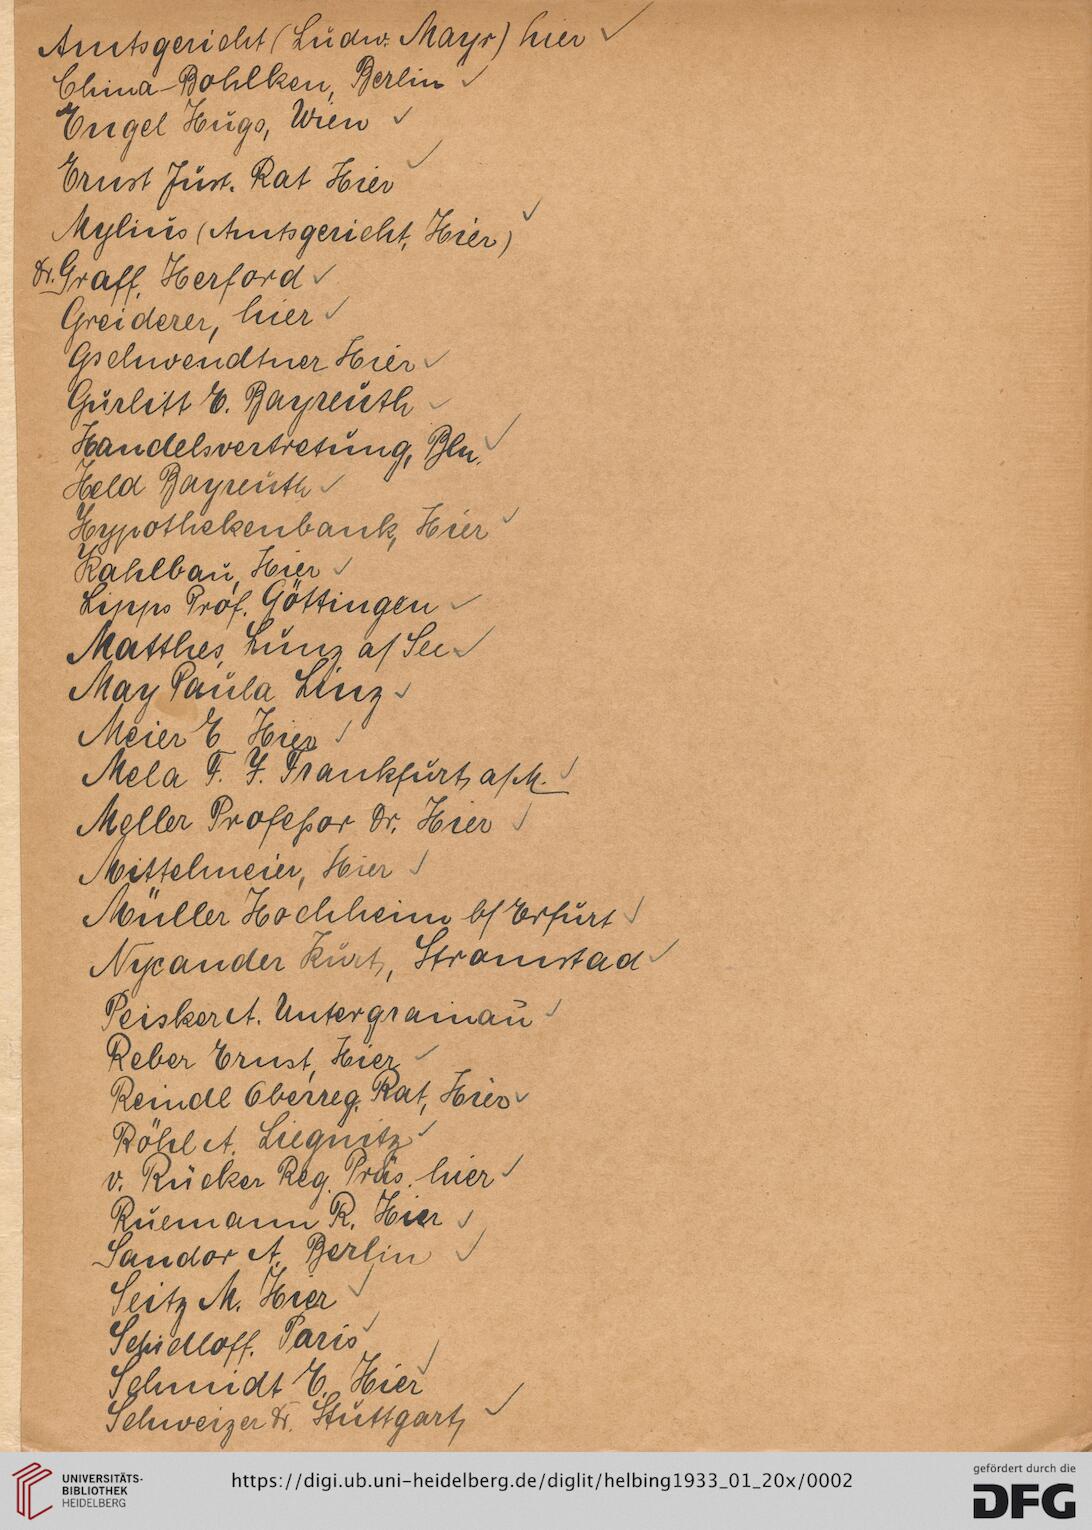 Amtsgericht (Ludw. Mayr) hier ✓
China-Bohlken, Berlin ✓
Engel Hugo, Wien ✓
Ernst Just. Rat Hier ✓
Mylius (Amtsgericht, Hier) ✓
Dr. Graff, Herford ✓
Greiderer, hier ✓
Gschwendtner Hier ✓
Gurlitt E. Bayreuth ✓
Handelsvertretung, Bln. ✓
Held Bayreuth ✓
Hypothekenbank, Hier ✓
Kahlbau, Hier ✓
Lipps Prof. Göttingen ✓
Matthes, Lunz a/See ✓
May Paula Linz ✓
Meier E Hier ✓
Mela F. J. Frankfurt a/M. ✓
Meller Profeßor Dr. Hier ✓
Mittelmeier, Hier ✓
Müller Hochheim b/Erfurt ✓
Nycander Kurt, Stromstad ✓
Peisker A. Untergrainau ✓
Reber Ernst, Hier ✓
Reindl Oberreg. Rat, Hier ✓
Röhl A. Liegnitz ✓
v. Rücker Reg. Präs. hier ✓
Ruemann R. Hier ✓
Sandor A. Berlin ✓
Seitz M. Hier ✓
Schidloff. Paris ✓
Schmidt E. Hier ✓
Schweizer Dr. Stuttgart ✓
UNIVERSITÄTS-
BIBLIOTHEK
HEIDELBERG
https://digi.ub.uni-heidelberg.de/diglit/helbing1933_01_20x/0002
gefördert durch die
DFG